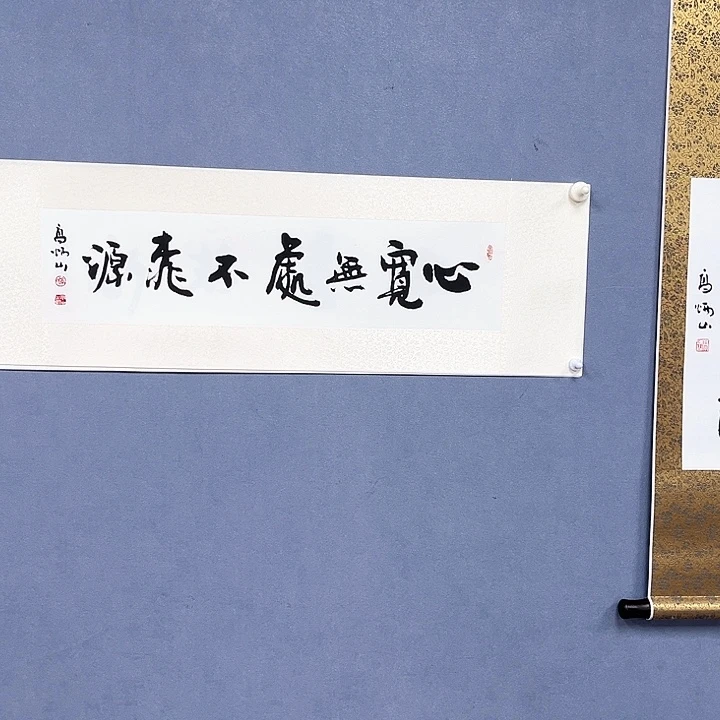 心寬無處不桃源
高炳山
高炳山